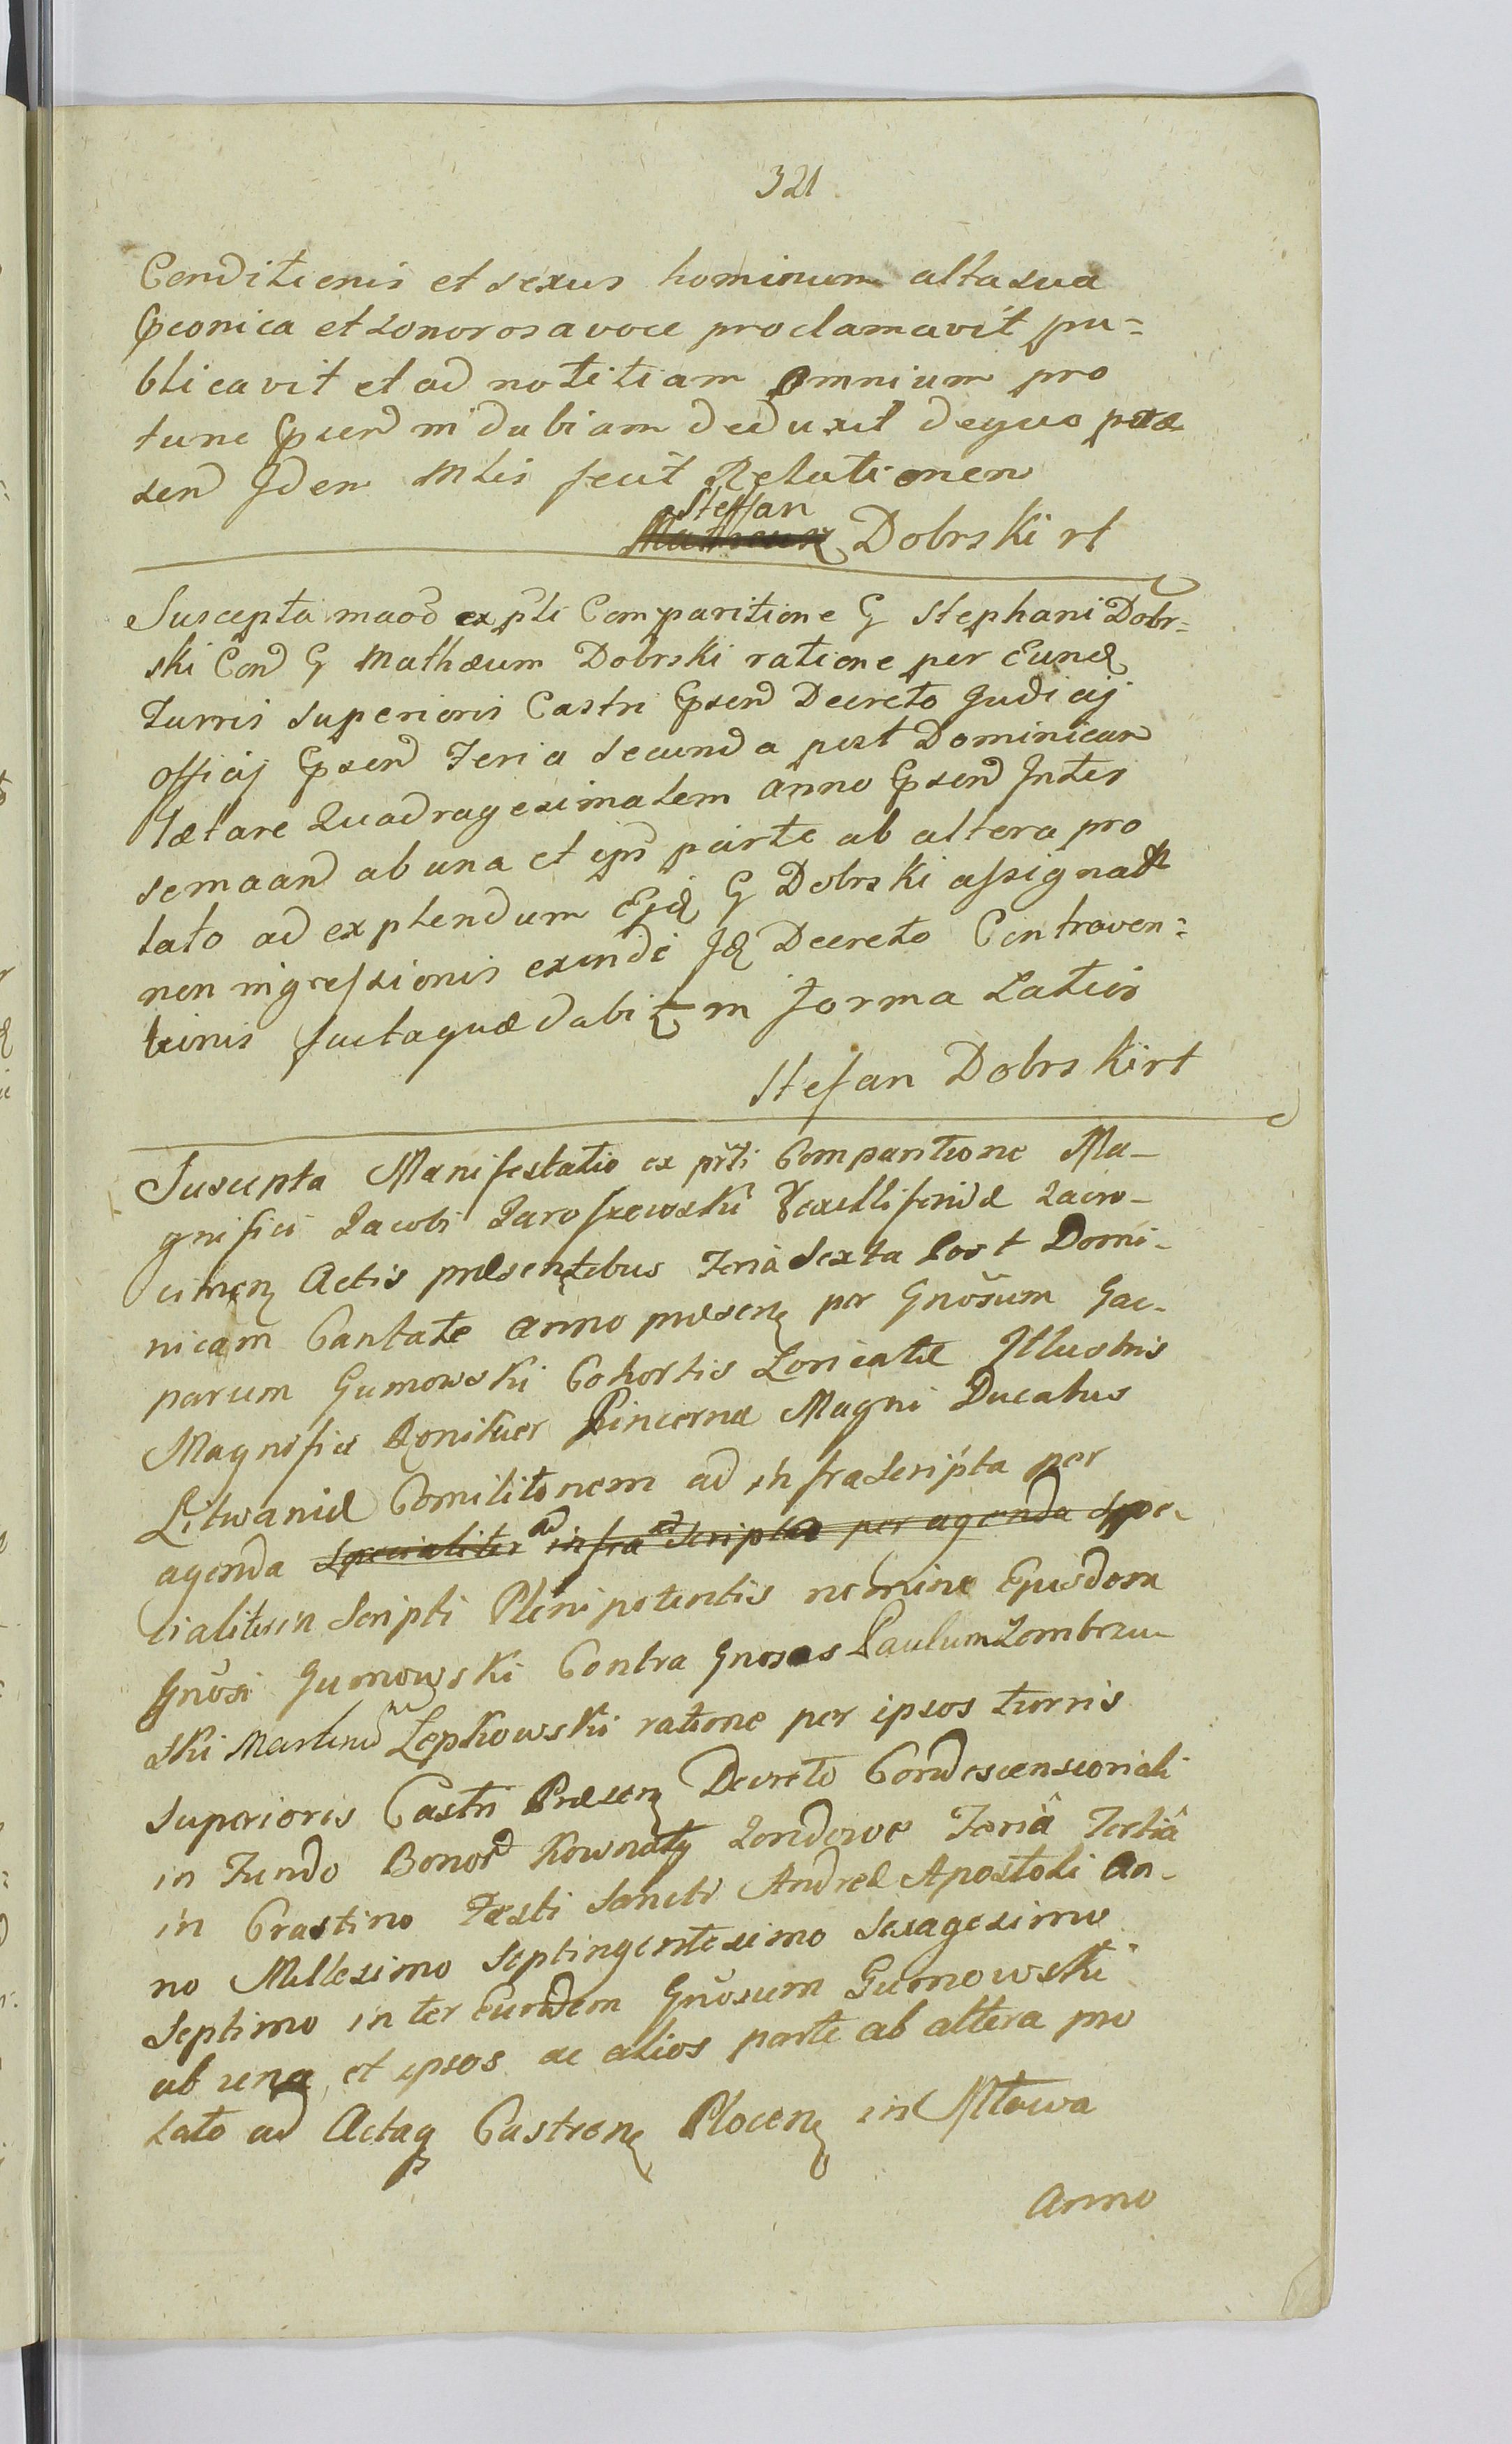 321
Conditionis et sexus hominum alta sua
Praeconica et sonorosa voce proclamavit pu=
blicavit et ad notitiam omnium pro
tunc Praesen indubiam deduxit de quo prae
sen Idem Mlis fecit Relationem
Steffan
Matheusz Dobrski rt
Suscepta maõd ex pti Comparitione G Stephani Dobr=
ski Con G Mathæum Dobrski ratione per Eund
Turris Superioris Castri Præsen Decreto Judicij
officij Præsen Feria Secunda post Dominicam
Lætare Quadragesimalem Anno Præsen Inter
semaan ab una et ips parte ab altera pro
lato ad explendum Ejd G Dobrski assignatæ
non ingressionis exinde Jd Decreto Contraven=
tionis factaquæ dabit in forma Latior
Stefan Dobrski rt
Suscepta Manifestatio ex pñti Comparitione Ma-
gnifici Jacobi Jaroszewski Vexilliferidæ Zacro-
cimen Actis præsentibus Feria Sexta Post Domi-
nicam Cantate Anno præsen per Gnõsum Gas-
parum Gumowski Cohortis Loricatæ Illustris
Magnifici Roniker Pincernæ Magni Ducatus
Litwaniæ Comilitonem ad infrascripta per
agenda specialiter ad infra ad scriptas per agenda Spe-
cialiter in Scripti Plenipotentis nomine Ejusdem
Gnõsi Gumowski Contra Gnosos Paulum Zombrzu-
ski Martinum Lepkowski ratione per ipsos turris
Superioris Castri Præsen Decreto Condescensoriali
in Fundo Bonor Kownaty Zendowe Feriâ Tertiâ
in Crastino Festi Sancti Andreæ Apostoli An-
no Millesimo Septingentesimo Sexagesimo
Septimo inter Eundem Gnõsum Gumowski
ab una et ipsos ac alios parte ab altera pro
lato ad Actaq Castren Plocen in Mława
Anno